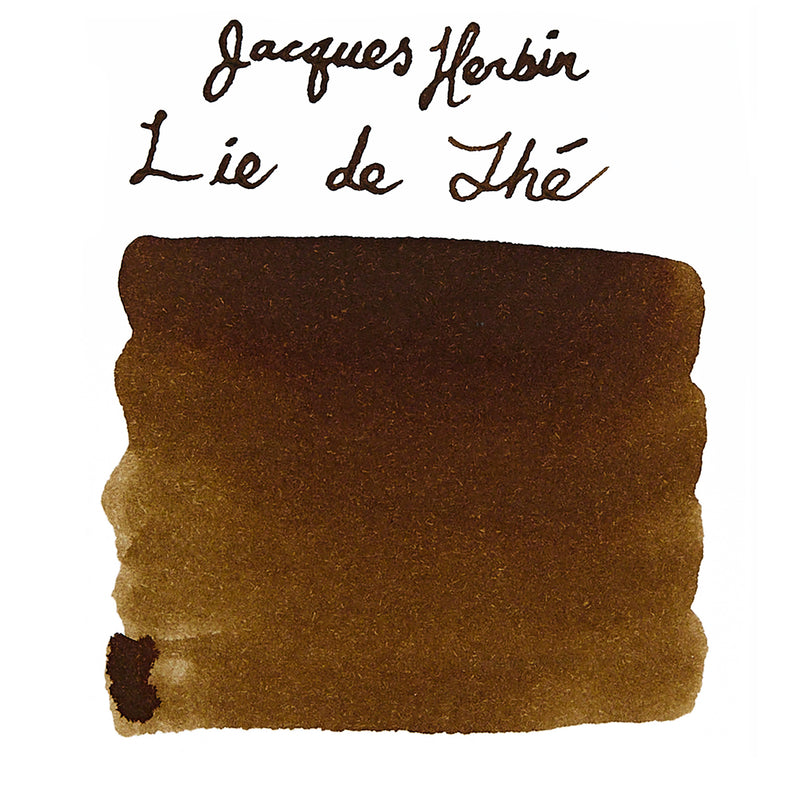 Jacques Herbin
Lie de Thé